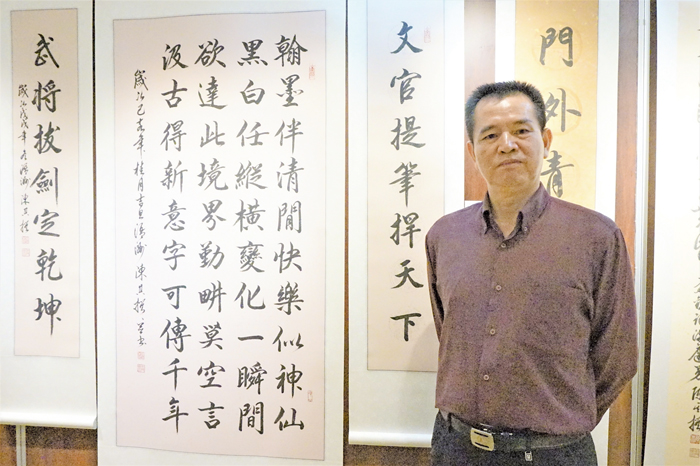 門外青
文官提筆捍天下
翰墨伴清閒快樂似神仙
黑白任縱橫變化一瞬間
欲達此境界勤畊莫空言
汲古得新意字可傳千年
歲次己亥年桂月吉旦 陳
武將拔劍定乾坤
歲次戊戌年 陳